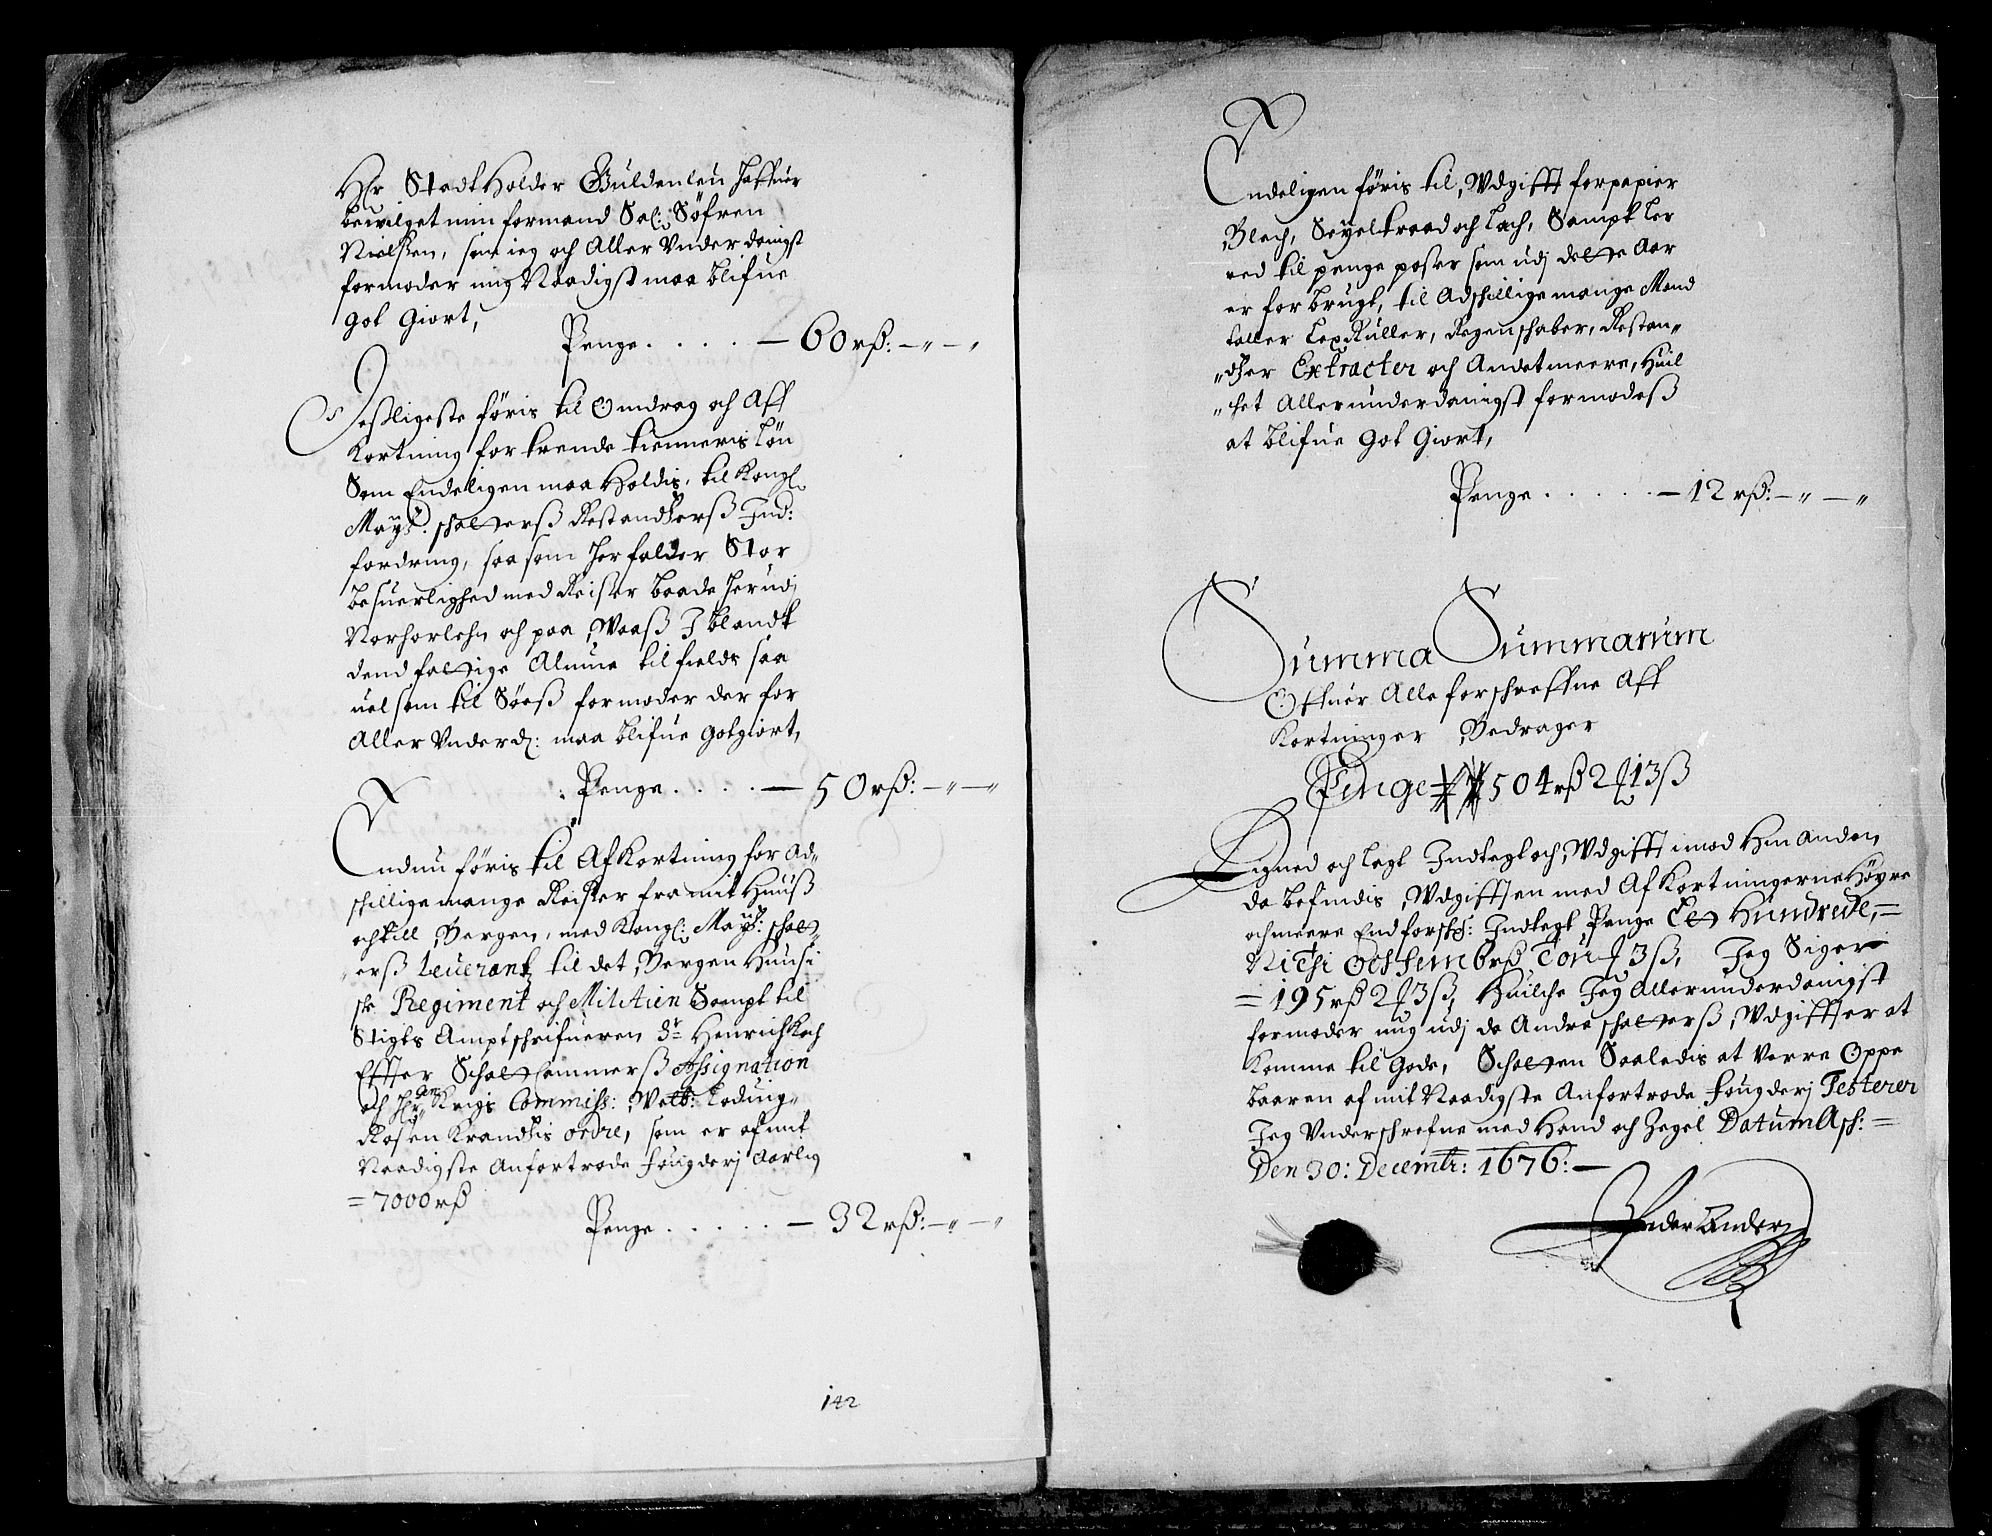 Hr StadtHolder Guldenleu haffuer
bewilget min formand Sal: Söfren
Nielsen, som ieg och Aller Vnderdanigst
formoder mig Naadigst maa blifue
got Giort,
Penge . . . . — 60 rß: — „ — „
Jesligeste föris til Omdrag och Aff
Kortning for trende tienneris Lön
Som Endeligen maa Holdis, til Kongl
Mayts: schatterß Restandserß Ind:
fordring, saa som her falder Stor
besuerlighed med Reiser baade herudj
Norhorlehn och paa Waaß I blandt
dend fattige Almue til fields saa
uel som til Söeß formoder der for
Aller Vnderd: maa blifue gotgiort,
Penge . . . . — 50 rß: — „ — „
Endnu föris til AfKortning for Ad„
schillige mange Reiser fra mit Huuß
och till Bergen, med Kongl: Mayts: schatt„
„erß Leuerantz til det Bergen Huusi
sk Regiment och Militien Sampt til
Stigts Amptschrifueren Sr Henrich Koch
Effter SchatCammerß Assignation
och Hr Krigs Commiss: Lading„
Rosen Krandtzis ordre, som er af mit
Naadigste Anfortrode fougderj Aarlig
= 7000 rß
Penge . . . . . — 32 rß: — „ — „
142
Endeligen föris til Wdgifft for papier
Blech, Seyeltraad och Lach, Sampt Ler
red til penge poser som udj dette Aar
er forbrugt, til Adschillige mange Mand
taller LexRuller, Regenschaber, Restan„
„dser Extracter och Andet meere, Huil
„chet Allerunderdanigst formodeß
at blifue got Giort,
Penge . . . . . — 12 rß: — „ — „
Summa Summarum
Offuer Alle forschreffne Aff
Kortninger Bedrager
Penge 504 rß 2 ʃ 13 ß
Lignad och Lagt Indtegt och Wdgifft imod Hin anden,
da befindis Wdgifften med AfKortningerne Höyre
och meere End forschr: Indtegt Penge Et Hundrede, =
Nitsi och fembrß Tou ʃ 3 ß, Jeg Siger
= 195 rß 2 ʃ 3 ß, Huilche Jeg Allerunderdanigst
formoder mig udj de Andre schatterß Wdgiffter at
Komme til Gode, Schatten Saaledis at Verre Oppe
baaren af mit Naadigste Anfortrode fougderj Testerer
Jeg Vnderschrefne med Hand och Zegel Datum Ash: =
Den 30: Decembr: 1676: —